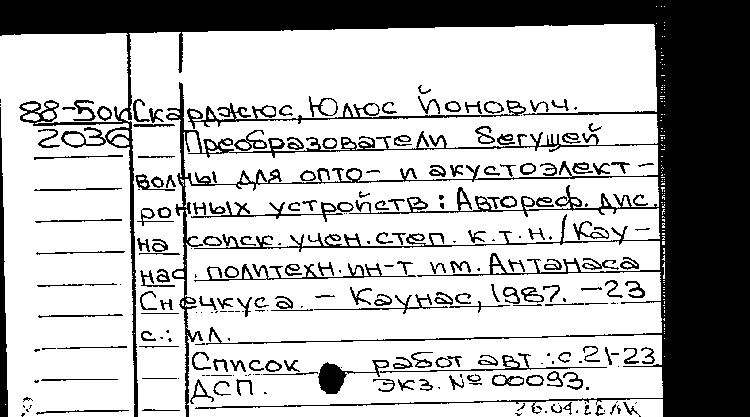 88-50к Скарджюс, Юлюс Йонович.
2036 Преобразователи бегущей
волны для опто- и акустоэлект-
ронных устройств: Автореф. дис.
на соиск. учен. степ. к.т.н. / Кау-
нас. политехн. ин-т им. Антанаса
Снечкуса. - Каунас, 1987. - 23
с.: ил.
Список работ авт.: с. 21-23
ДСП. Экз. № 00093.
26.04.88